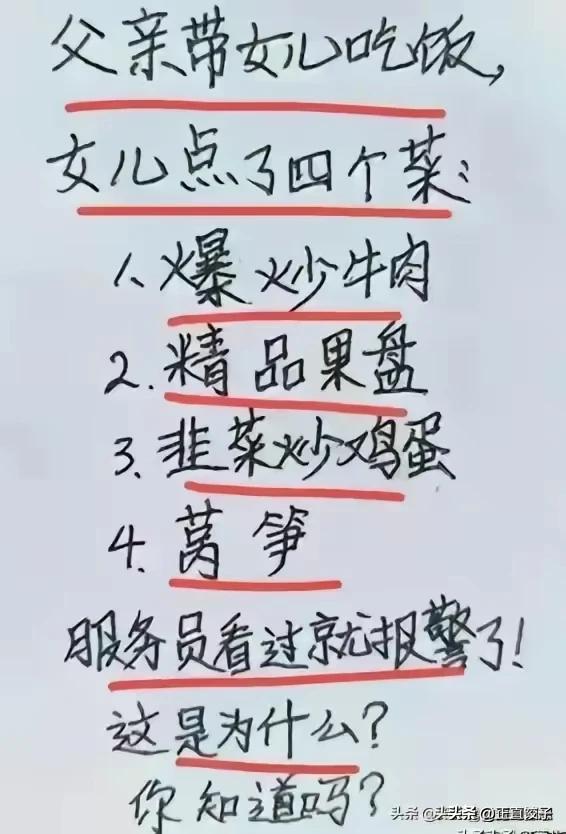 父亲带女儿吃饭，
女儿点了四个菜：
1、爆炒牛肉
2.精品果盘
3.韭菜炒鸡蛋
4.莴笋
服务员看过就报警了！
这是为什么？
你知道吗？
头条 @头头条 @正直饺子